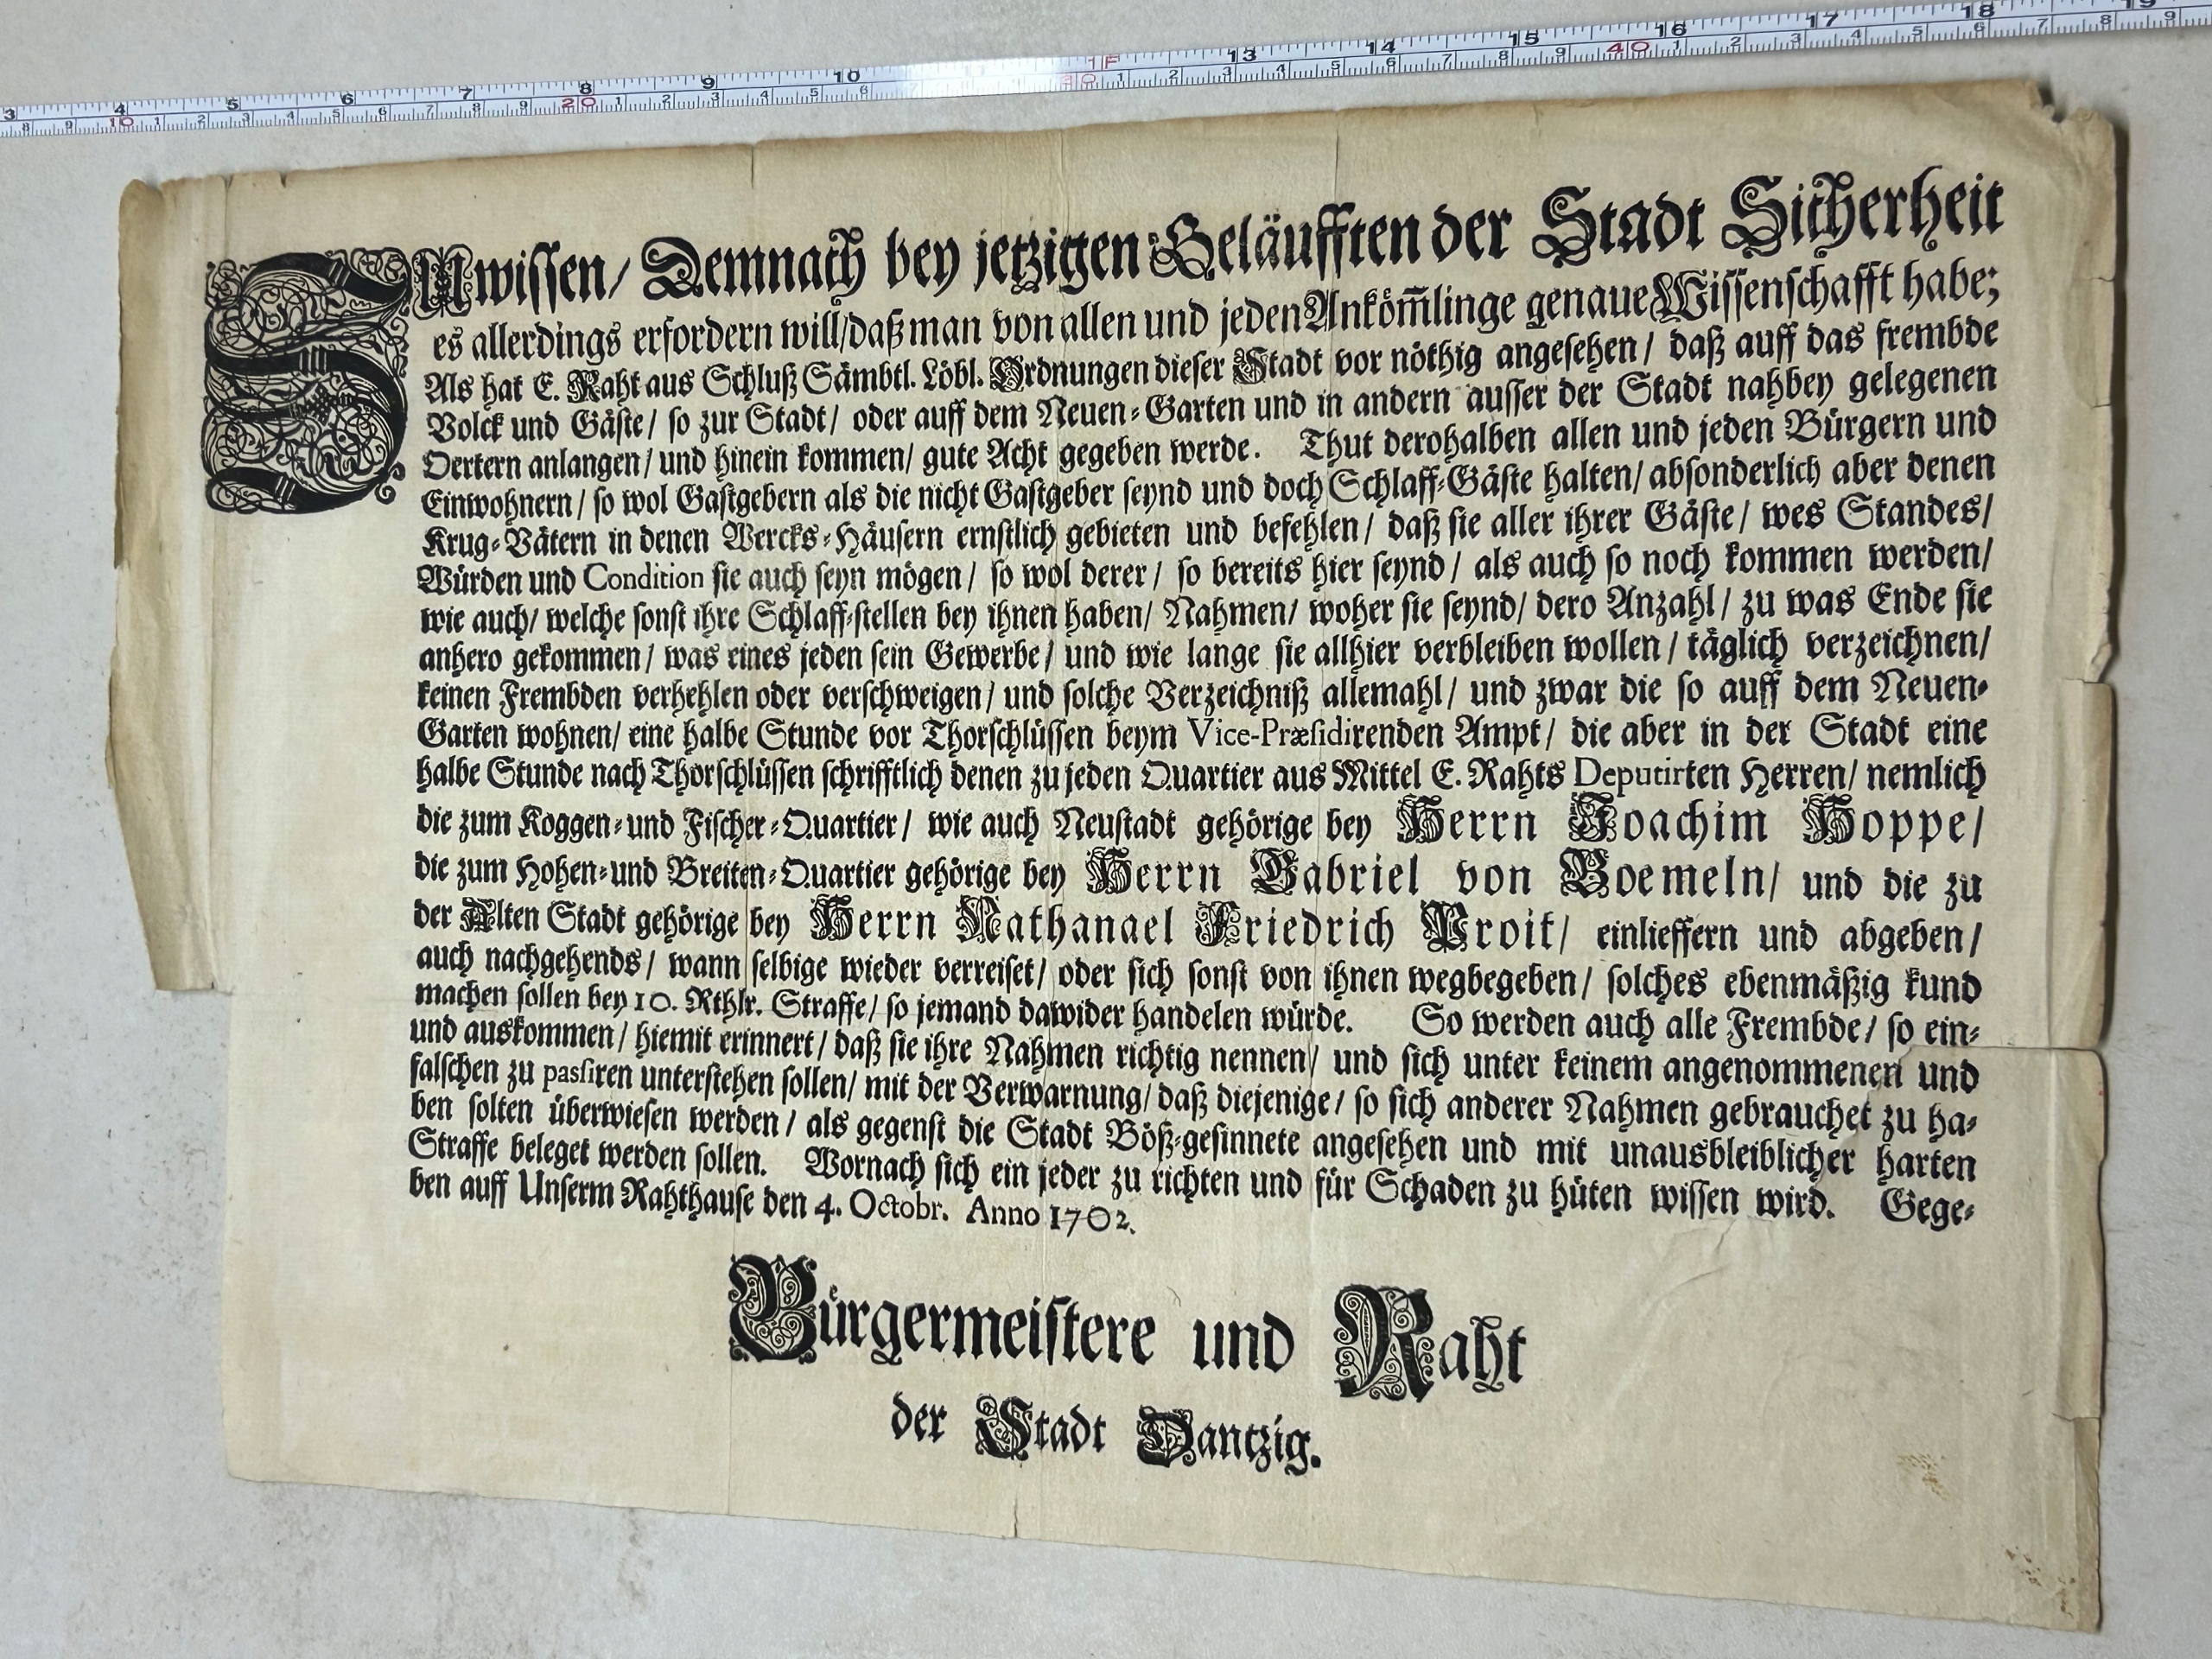 3 4 5 6 7 8 9 10 11 1F 13 14 15 16 17 18 19
8 9 10 1 2 3 4 5 6 7 8 9 20 1 2 3 4 5 6 30 1 2 3 4 5 6 7 8 9 40 1 2 3 4 5 6 7 8 9
ZUwissen/ Demnach bey jetzigen Geläufften der Stadt Sicherheit
es allerdings erfordern will/daß man von allen und jeden Ankom̄linge genaue Wissenschafft habe;
Als hat E. Raht aus Schluß Sämbtl. Löbl. Ordnungen dieser Stadt vor nöthig angesehen/ daß auff das frembde
Volck und Gäste/ so zur Stadt/ oder auff dem Neuen-Garten und in andern ausser der Stadt nahbey gelegenen
Oertern anlangen/ und hinein kommen/ gute Acht gegeben werde. Thut derohalben allen und jeden Bürgern und
Einwohnern/ so wol Gastgebern als die nicht Gastgeber seynd und doch Schlaff-Gäste halten/ absonderlich aber denen
Krug-Vätern in denen Wercks-Häusern ernstlich gebieten und befehlen/ daß sie aller ihrer Gäste/ wes Standes/
Würden und Condition sie auch seyn mögen/ so wol derer/ so bereits hier seynd/ als auch so noch kommen werden/
wie auch/ welche sonst ihre Schlaff-stellen bey ihnen haben/ Nahmen/ woher sie seynd/ dero Anzahl/ zu was Ende sie
anhero gekommen/ was eines jeden sein Gewerbe/ und wie lange sie allhier verbleiben wollen/ täglich verzeichnen/
keinen Frembden verhehlen oder verschweigen/ und solche Verzeichniß allemahl/ und zwar die so auff dem Neuen-
Garten wohnen/ eine halbe Stunde vor Thorschlüssen beym Vice-Præsidirenden Ampt/ die aber in der Stadt eine
halbe Stunde nach Thorschlüssen schrifftlich denen zu jeden Quartier aus Mittel E. Rahts Deputirten Herren/ nemlich
die zum Koggen-und Fischer-Quartier/ wie auch Neustadt gehörige bey Herrn Joachim Hoppe/
die zum Hohen-und Breiten-Quartier gehörige bey Herrn Gabriel von Boemeln/ und die zu
der Alten Stadt gehörige bey Herrn Nathanael Friedrich Proit/ einlieffern und abgeben/
auch nachgehends/ wann selbige wieder verreiset/ oder sich sonst von ihnen wegbegeben/ solches ebenmäßig kund
machen sollen bey 10. Rthlr. Straffe/ so jemand dawider handelen würde. So werden auch alle Frembde/ so ein-
und auskommen/ hiemit erinnert/ daß sie ihre Nahmen richtig nennen/ und sich unter keinem angenommenen und
falschen zu passiren unterstehen sollen/ mit der Verwarnung/ daß diejenige/ so sich anderer Nahmen gebrauchet zu ha-
ben solten überwiesen werden/ als gegenst die Stadt Böß-gesinnete angesehen und mit unausbleiblicher harten
Straffe beleget werden sollen. Wornach sich ein jeder zu richten und für Schaden zu hüten wissen wird. Gege-
ben auff Unserm Rahthause den 4. Octobr. Anno 1702.
Bürgermeistere und Raht
der Stadt Dantzig.